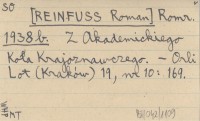 SO
[REINFUSS Roman] Romr.
1938b. Z Akademickiego
Koła Krajoznawczego. – Orli
Lot (Kraków) 19, nr 10: 169.
MT